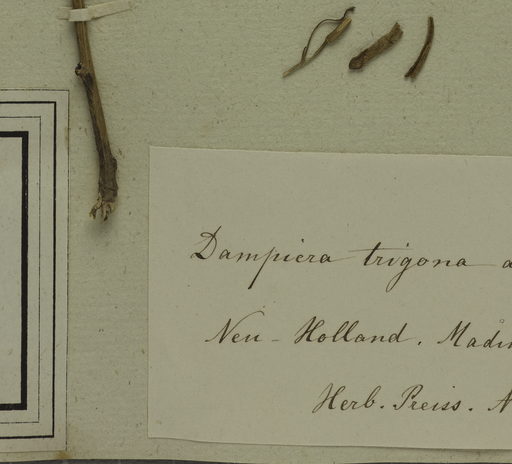 Dampiera trigona
Neu-Holland.
Herb. Preiss. N